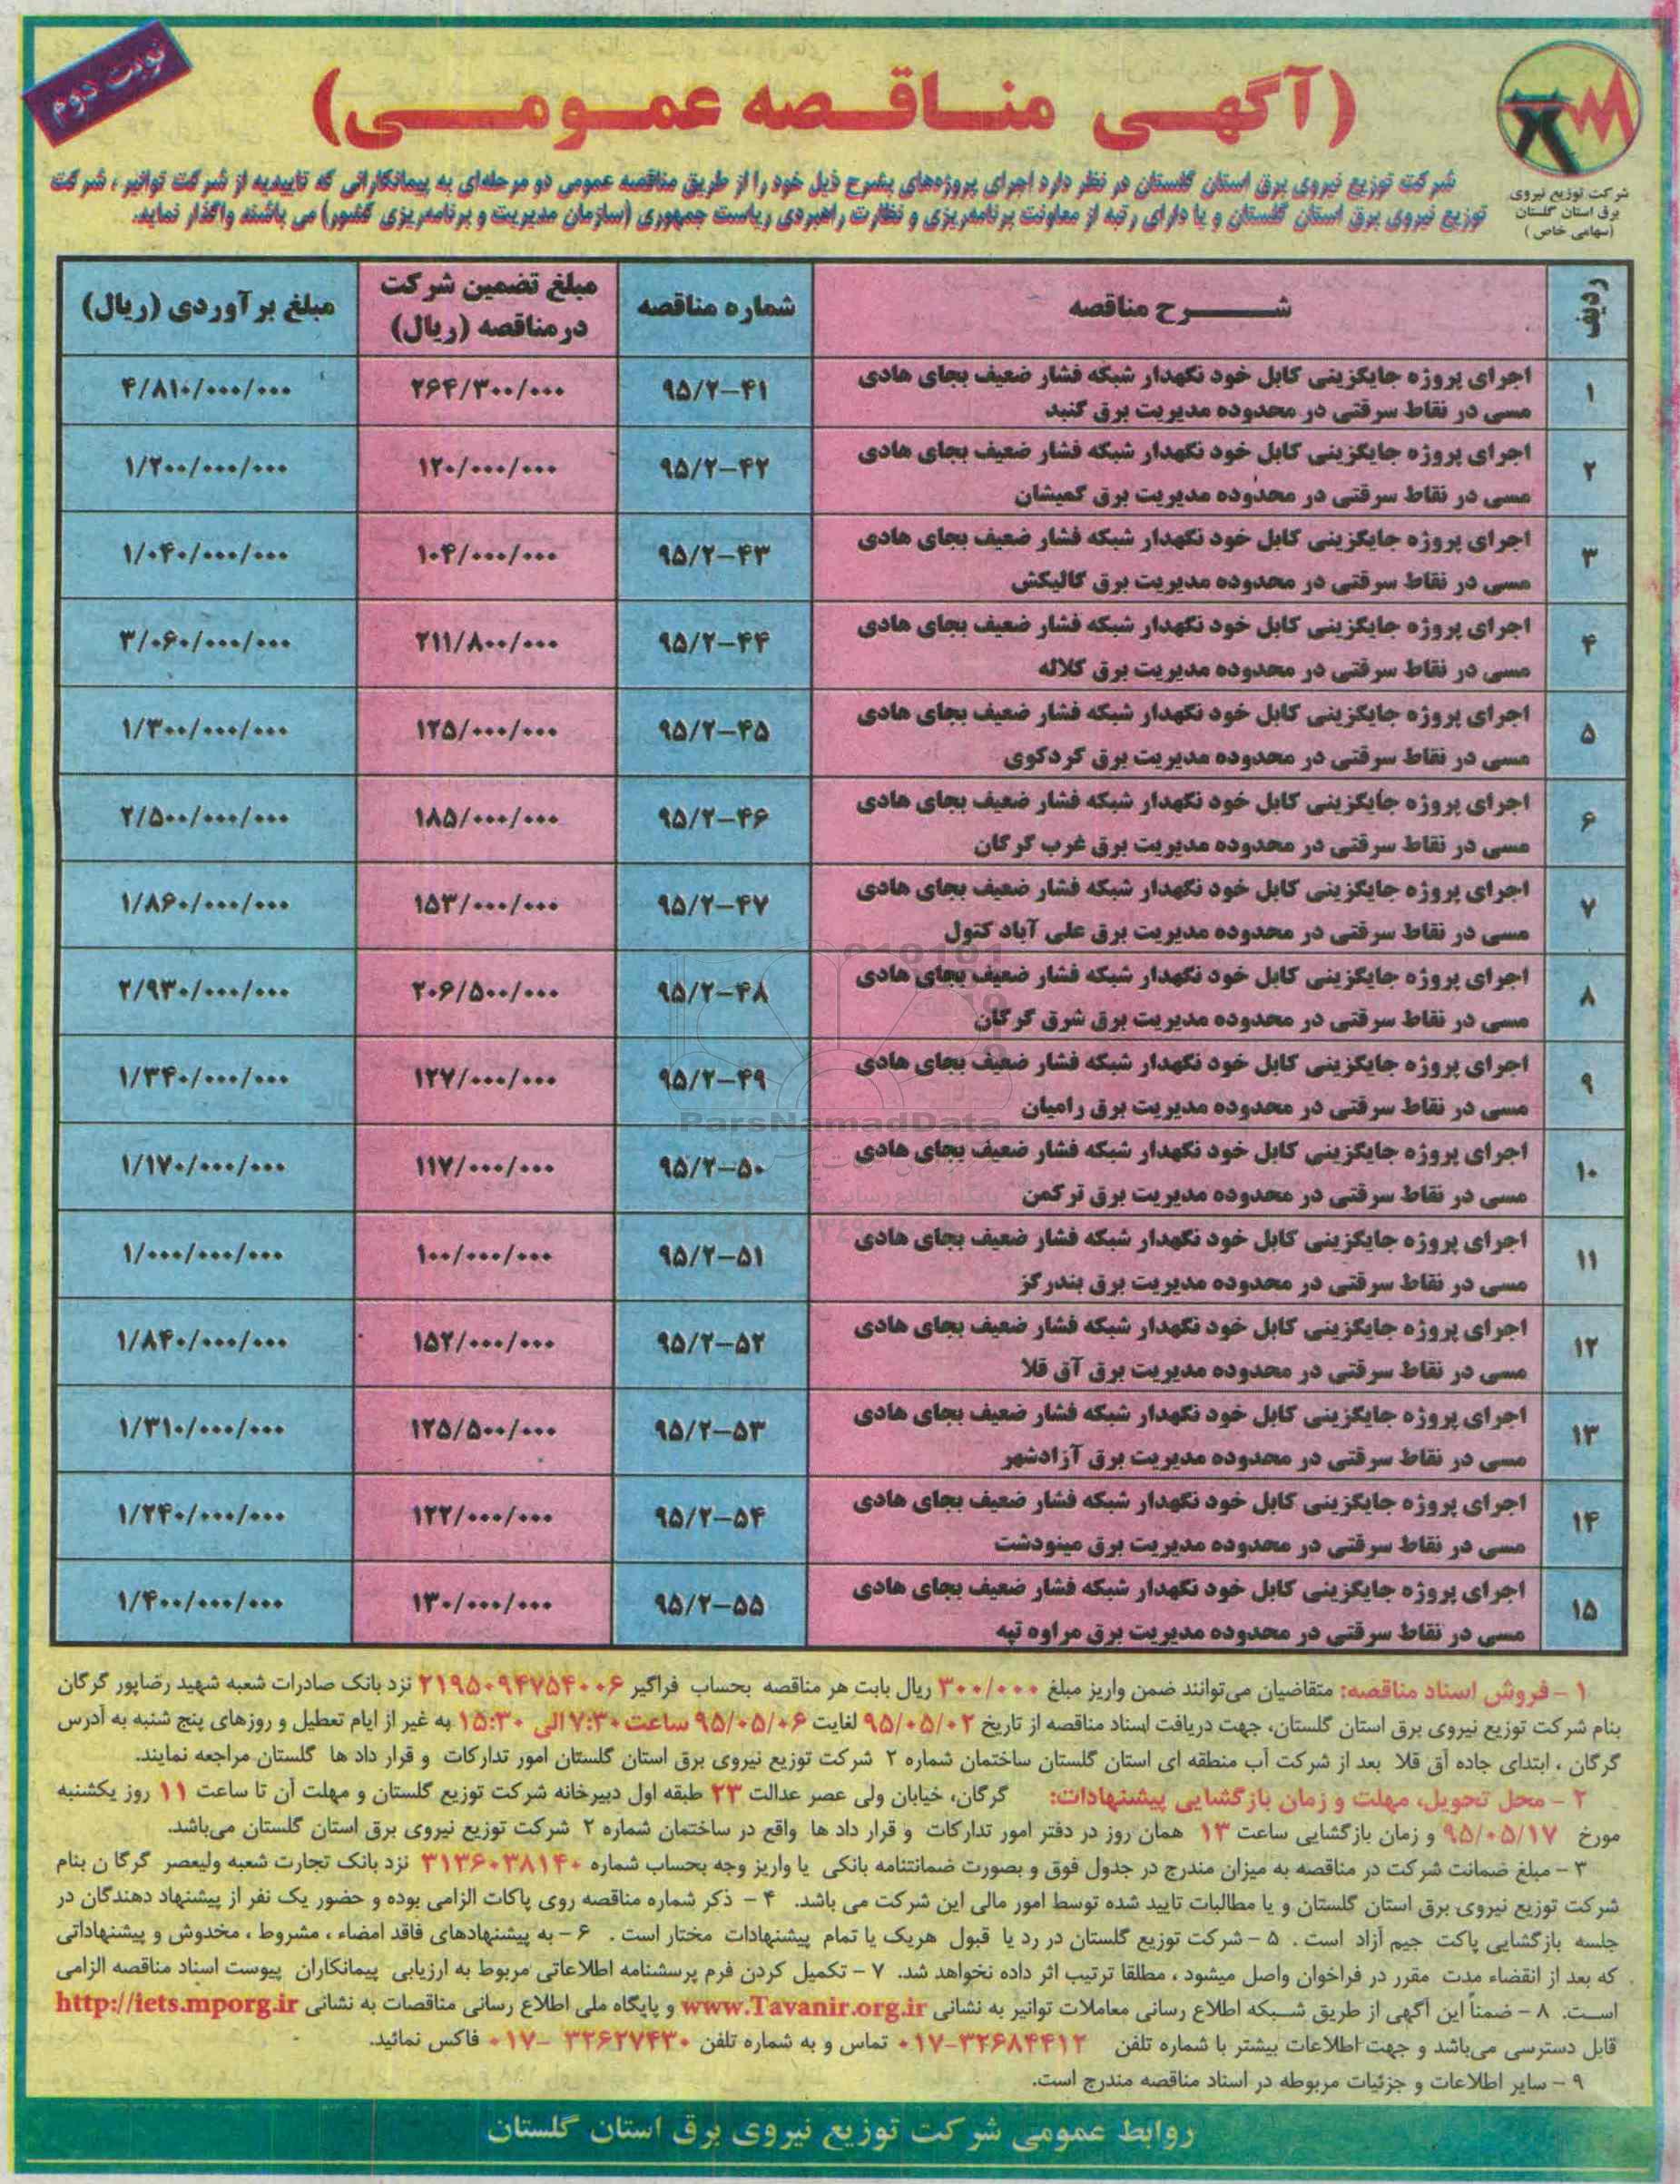 نوبت دوم
(آگهی مناقصه عمومی)
شرکت توزیع نیروی
برق استان گلستان
(سهامی خاص)
شرکت توزیع نیروی برق استان گلستان در نظر دارد اجرای پروژه‌های بشرح ذیل خود را از طریق مناقصه عمومی دو مرحله‌ای به پیمانکارانی که تاییدیه از شرکت توانیر ، شرکت
توزیع نیروی برق استان گلستان و یا دارای رتبه از معاونت برنامه‌ریزی و نظارت راهبردی ریاست جمهوری (سازمان مدیریت و برنامه‌ریزی کشور) می باشند واگذار نماید.
ردیف شرح مناقصه شماره مناقصه مبلغ تضمین شرکت در مناقصه (ریال) مبلغ برآوردی (ریال)
۱ اجرای پروژه جایگزینی کابل خود نگهدار شبکه فشار ضعیف بجای هادی
مسی در نقاط سرقتی در محدوده مدیریت برق گنبد ۹۵/۲-۴۱ ۲۶۴/۳۰۰/۰۰۰ ۴/۸۱۰/۰۰۰/۰۰۰
۲ اجرای پروژه جایگزینی کابل خود نگهدار شبکه فشار ضعیف بجای هادی
مسی در نقاط سرقتی در محدوده مدیریت برق گمیشان ۹۵/۲-۴۲ ۱۲۰/۰۰۰/۰۰۰ ۱/۲۰۰/۰۰۰/۰۰۰
۳ اجرای پروژه جایگزینی کابل خود نگهدار شبکه فشار ضعیف بجای هادی
مسی در نقاط سرقتی در محدوده مدیریت برق گالیکش ۹۵/۲-۴۳ ۱۰۴/۰۰۰/۰۰۰ ۱/۰۴۰/۰۰۰/۰۰۰
۴ اجرای پروژه جایگزینی کابل خود نگهدار شبکه فشار ضعیف بجای هادی
مسی در نقاط سرقتی در محدوده مدیریت برق کلاله ۹۵/۲-۴۴ ۲۱۱/۸۰۰/۰۰۰ ۳/۰۶۰/۰۰۰/۰۰۰
۵ اجرای پروژه جایگزینی کابل خود نگهدار شبکه فشار ضعیف بجای هادی
مسی در نقاط سرقتی در محدوده مدیریت برق کردکوی ۹۵/۲-۴۵ ۱۲۵/۰۰۰/۰۰۰ ۱/۳۰۰/۰۰۰/۰۰۰
۶ اجرای پروژه جایگزینی کابل خود نگهدار شبکه فشار ضعیف بجای هادی
مسی در نقاط سرقتی در محدوده مدیریت برق غرب گرگان ۹۵/۲-۴۶ ۱۸۵/۰۰۰/۰۰۰ ۲/۵۰۰/۰۰۰/۰۰۰
۷ اجرای پروژه جایگزینی کابل خود نگهدار شبکه فشار ضعیف بجای هادی
مسی در نقاط سرقتی در محدوده مدیریت برق علی آباد کتول ۹۵/۲-۴۷ ۱۵۳/۰۰۰/۰۰۰ ۱/۸۶۰/۰۰۰/۰۰۰
۸ اجرای پروژه جایگزینی کابل خود نگهدار شبکه فشار ضعیف بجای هادی
مسی در نقاط سرقتی در محدوده مدیریت برق شرق گرگان ۹۵/۲-۴۸ ۲۰۶/۵۰۰/۰۰۰ ۲/۹۳۰/۰۰۰/۰۰۰
۹ اجرای پروژه جایگزینی کابل خود نگهدار شبکه فشار ضعیف بجای هادی
مسی در نقاط سرقتی در محدوده مدیریت برق رامیان ۹۵/۲-۴۹ ۱۲۷/۰۰۰/۰۰۰ ۱/۳۴۰/۰۰۰/۰۰۰
ParsNamadData
۱۰ اجرای پروژه جایگزینی کابل خود نگهدار شبکه فشار ضعیف بجای هادی
مسی در نقاط سرقتی در محدوده مدیریت برق ترکمن ۹۵/۲-۵۰ ۱۱۷/۰۰۰/۰۰۰ ۱/۱۷۰/۰۰۰/۰۰۰
۱۱ اجرای پروژه جایگزینی کابل خود نگهدار شبکه فشار ضعیف بجای هادی
مسی در نقاط سرقتی در محدوده مدیریت برق بندرگز ۹۵/۲-۵۱ ۱۰۰/۰۰۰/۰۰۰ ۱/۰۰۰/۰۰۰/۰۰۰
۱۲ اجرای پروژه جایگزینی کابل خود نگهدار شبکه فشار ضعیف بجای هادی
مسی در نقاط سرقتی در محدوده مدیریت برق آق قلا ۹۵/۲-۵۲ ۱۵۲/۰۰۰/۰۰۰ ۱/۸۴۰/۰۰۰/۰۰۰
۱۳ اجرای پروژه جایگزینی کابل خود نگهدار شبکه فشار ضعیف بجای هادی
مسی در نقاط سرقتی در محدوده مدیریت برق آزادشهر ۹۵/۲-۵۳ ۱۲۵/۵۰۰/۰۰۰ ۱/۳۱۰/۰۰۰/۰۰۰
۱۴ اجرای پروژه جایگزینی کابل خود نگهدار شبکه فشار ضعیف بجای هادی
مسی در نقاط سرقتی در محدوده مدیریت برق مینودشت ۹۵/۲-۵۴ ۱۲۲/۰۰۰/۰۰۰ ۱/۲۴۰/۰۰۰/۰۰۰
۱۵ اجرای پروژه جایگزینی کابل خود نگهدار شبکه فشار ضعیف بجای هادی
مسی در نقاط سرقتی در محدوده مدیریت برق مراوه تپه ۹۵/۲-۵۵ ۱۳۰/۰۰۰/۰۰۰ ۱/۴۰۰/۰۰۰/۰۰۰
۱ - فروش اسناد مناقصه: متقاضیان می‌توانند ضمن واریز مبلغ ۳۰۰/۰۰۰ ریال بابت هر مناقصه بحساب فراگیر ۲۱۹۵۰۹۴۷۵۴۰۰۶ نزد بانک صادرات شعبه شهید رضاپور گرگان
بنام شرکت توزیع نیروی برق استان گلستان، جهت دریافت اسناد مناقصه از تاریخ ۹۵/۰۵/۰۲ لغایت ۹۵/۰۵/۰۶ ساعت ۷:۳۰ الی ۱۵:۳۰ به غیر از ایام تعطیل و روزهای پنج شنبه به آدرس
گرگان ، ابتدای جاده آق قلا بعد از شرکت آب منطقه ای استان گلستان ساختمان شماره ۲ شرکت توزیع نیروی برق استان گلستان امور تدارکات و قرار داد ها گلستان مراجعه نمایند.
۲ - محل تحویل، مهلت و زمان بازگشایی پیشنهادات: گرگان، خیابان ولی عصر عدالت ۲۳ طبقه اول دبیرخانه شرکت توزیع گلستان و مهلت آن تا ساعت ۱۱ روز یکشنبه
مورخ ۹۵/۰۵/۱۷ و زمان بازگشایی ساعت ۱۳ همان روز در دفتر امور تدارکات و قرار داد ها واقع در ساختمان شماره ۲ شرکت توزیع نیروی برق استان گلستان می‌باشد.
۳ - مبلغ ضمانت شرکت در مناقصه به میزان مندرج در جدول فوق و بصورت ضمانتنامه بانکی یا واریز وجه بحساب شماره ۳۱۳۶۰۳۸۱۴۰ نزد بانک تجارت شعبه ولیعصر گرگان بنام
شرکت توزیع نیروی برق استان گلستان و یا مطالبات تایید شده توسط امور مالی این شرکت می باشد. ۴ - ذکر شماره مناقصه روی پاکات الزامی بوده و حضور یک نفر از پیشنهاد دهندگان در
جلسه بازگشایی پاکت جیم آزاد است . ۵ - شرکت توزیع گلستان در رد یا قبول هریک یا تمام پیشنهادات مختار است . ۶ - به پیشنهادهای فاقد امضاء ، مشروط ، مخدوش و پیشنهاداتی
که بعد از انقضاء مدت مقرر در فراخوان واصل میشود ، مطلقا ترتیب اثر داده نخواهد شد. ۷ - تکمیل کردن فرم پرسشنامه اطلاعاتی مربوط به ارزیابی پیمانکاران پیوست اسناد مناقصه الزامی
است. ۸ - ضمناً این آگهی از طریق شبکه اطلاع رسانی معاملات توانیر به نشانی www.Tavanir.org.ir و پایگاه ملی اطلاع رسانی مناقصات به نشانی http://iets.mporg.ir
قابل دسترسی می‌باشد و جهت اطلاعات بیشتر با شماره تلفن ۰۱۷-۳۲۶۸۴۴۱۲ تماس و به شماره تلفن ۳۲۶۲۷۴۳۰ -۰۱۷ فاکس نمائید.
۹ - سایر اطلاعات و جزئیات مربوطه در اسناد مناقصه مندرج است.
روابط عمومی شرکت توزیع نیروی برق استان گلستان